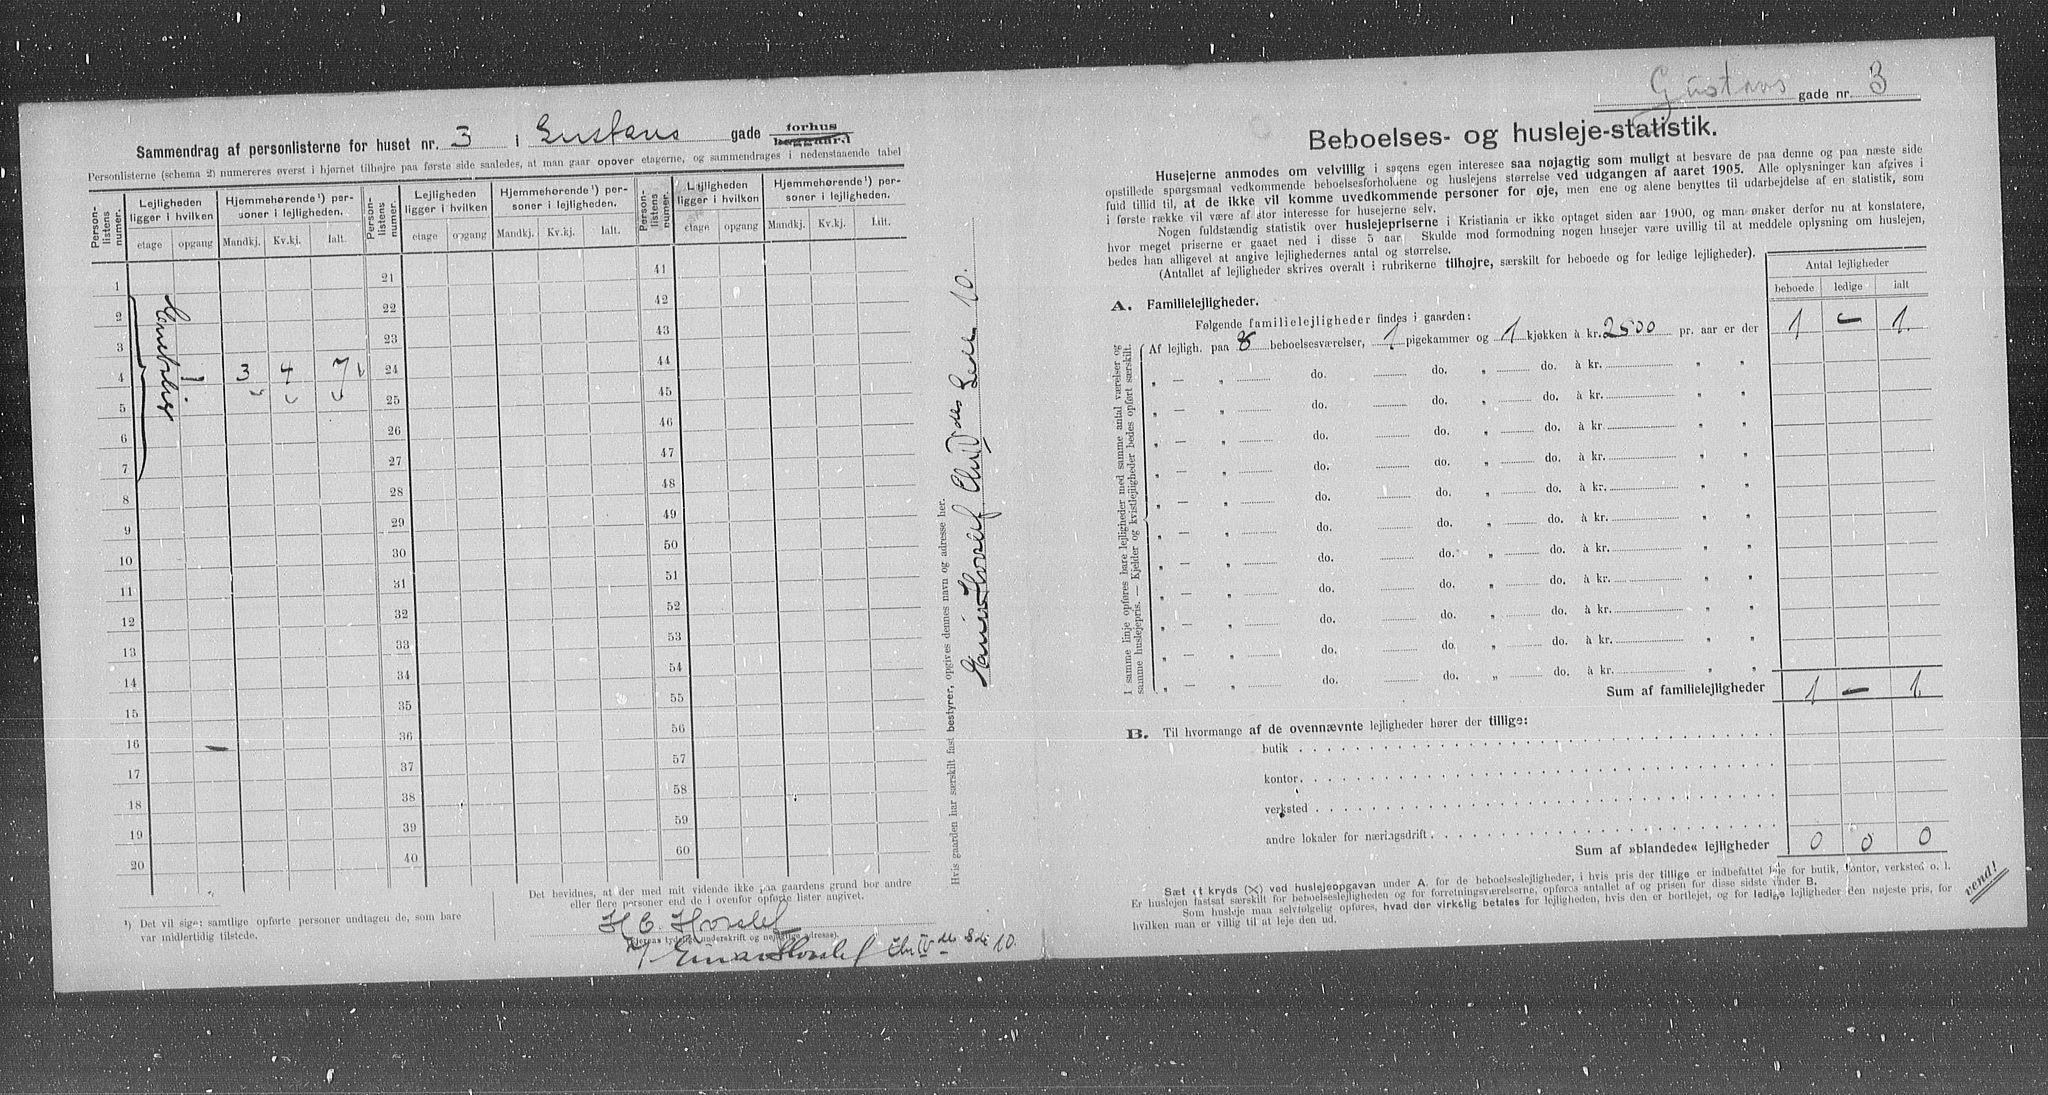 Sammendrag af personlisterne for huset nr. 3 i Gustavs gade forhus baggaard
Personlisterne (schema 2) numereres øverst i hjørnet tilhøjre paa første side saaledes, at man gaar opover etagerne, og sammendrages i nedenstaaende tabel
Person-listens numer. Lejligheden ligger i hvilken Hjemmehørende¹) per-soner i lejligheden. Person-listens numer. Lejligheden ligger i hvilken Hjemmehørende¹) per-soner i lejligheden. Person-listens numer. Lejligheden ligger i hvilken Hjemmehørende¹) per-soner i lejligheden.
etage opgang Mandkj. Kv.kj. Ialt. etage opgang Mandkj. Kv.kj. Ialt. etage opgang Mandkj. Kv.kj. Ialt.
1 21 41
2 22 42
3 23 43
4 1 3 4 7 24 44
5 25 45
6 26 46
7 27 47
8 28 48
9 29 49
10 30 50
11 31 51
12 32 52
13 33 53
14 34 54
15 35 55
16 36 56
17 37 57
18 38 58
19 39 59
20 40 60
¹) Det vil sige: samtlige opførte personer undtagen de, som bare
var midlertidig tilstede.
Det bevidnes, at der med mit vidende ikke paa gaardens grund bor andre
eller flere personer end de i ovenfor opførte lister angivet.
H. C. Horslef
(Ejerens tydelige underskrift og nøjagtige adresse).
Einar Horslef Chr IV des Gde 10.
Hvis gaarden har særskilt fast bestyrer, opgives dennes navn og adresse her.
Einar Horslef Chr IV des Gade 10.
Gustavs gade nr. 3
Beboelses- og husleje-statistik.
Husejerne anmodes om velvillig i sagens egen interesse saa nøjagtig som muligt at besvare de paa denne og paa næste side
opstillede spørgsmaal vedkommende beboelsesforholdene og huslejens størrelse ved udgangen af aaret 1905. Alle oplysninger kan afgives i
fuld tillid til, at de ikke vil komme uvedkommende personer for øje, men ene og alene benyttes til udarbejdelse af en statistik, som
i første række vil være af stor interesse for husejerne selv.
Nogen fuldstændig statistik over huslejepriserne i Kristiania er ikke optaget siden aar 1900, og man ønsker derfor nu at konstatere,
hvor meget priserne er gaaet ned i disse 5 aar. Skulde mod formodning nogen husejer være uvillig til at meddele oplysning om huslejen,
bedes han alligevel at angive lejlighedernes antal og størrelse.
(Antallet af lejligheder skrives overalt i rubrikerne tilhøjre, særskilt for beboede og for ledige lejligheder).
Antal lejligheder
beboede ledige ialt
A. Familielejligheder.
Følgende familielejligheder findes i gaarden:
Af lejligh. paa 8 beboelsesværelser, 1 pigekammer og 1 kjøkken à kr. 2500 pr. aar er der 1 – 1.
„ — „ do. do. „ do. à kr. „ „
„ — „ do. do. „ do. à kr. „ „
„ — „ do. do. „ do. à kr. „ „
„ — „ do. do. „ do. à kr. „ „
„ — „ do. do. „ do. à kr. „ „
„ — „ do. do. „ do. à kr. „ „
„ — „ do. do. „ do. à kr. „ „
„ — „ do. do. „ do. à kr. „ „
„ — „ do. do. „ do. à kr. „ „
„ — „ do. do. „ do. à kr. „ „
„ — „ do. do. „ do. à kr. „ „
I samme linje opføres bare lejligheder med samme antal værelser og
samme huslejepris. — Kjelder og kvistlejligheder bedes opført særskilt.
Sum af familielejligheder 1 – 1.
B. Til hvormange af de ovennævnte lejligheder hører der tillige:
butik
kontor
verksted
andre lokaler for næringsdrift
Sum af »blandede« lejligheder 0 0 0
Sæt et kryds (X) ved huslejeopgaven under A. for de beboelseslejligheder, i hvis pris der tillige er indbefattet leje for butik, kontor, verksted o. l.
Er huslejen fastsat særskilt for beboelseslejligheden og for forretningsværelserne, opføres antallet af og prisen for disse sidste under B.
Som husleje maa selvfølgelig opføres, hvad der virkelig betales for lejligheden, hvis den er bortlejet, og for ledige lejligheder den nøjeste pris, for
hvilken man er villig til at leje den ud.
vend!